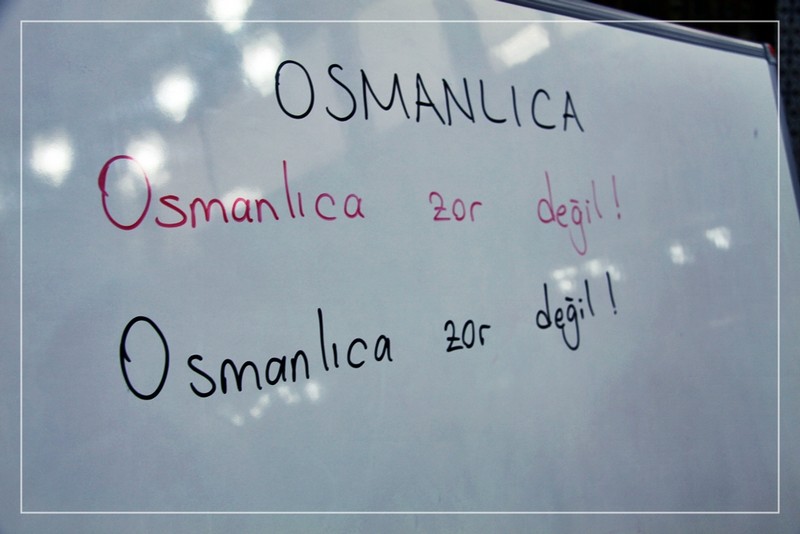 OSMANLICA
Osmanlıca zor değil!
Osmanlıca zor değil!